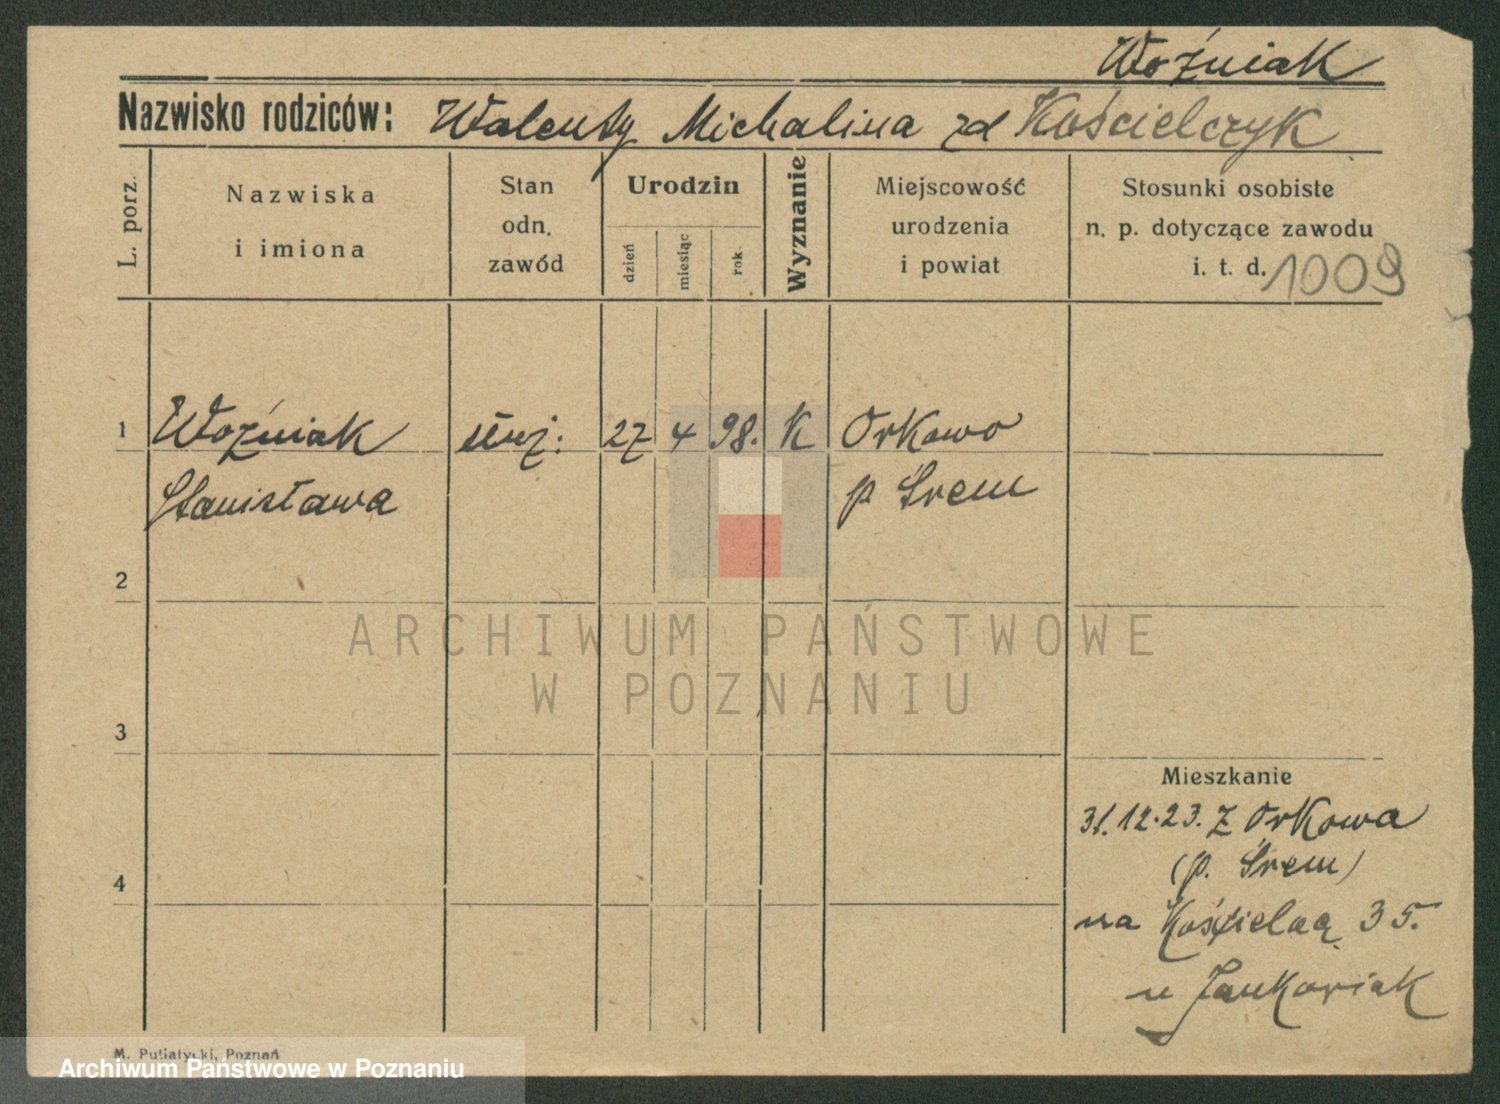 Woźniak
Nazwisko rodziców: Walenty Michalina zd Kościelczyk
L. porz.
Nazwiska
i imiona
Stan
odn.
zawód
Urodzin
dzień
miesiąc
rok
Wyznanie
Miejscowość
urodzenia
i powiat
Stosunki osobiste
n. p. dotyczące zawodu
i. t. d. 1009
1 Woźniak 27 4 98. K Orkowo
Stanisława p Śrem
2
3
Mieszkanie
31.12.23. z Orkowa
(p. Śrem)
4
na 35.
u
M. Putiatycki, Poznań
ARCHIWUM PAŃSTWOWE
W POZNANIU
Archiwum Państwowe w Poznaniu